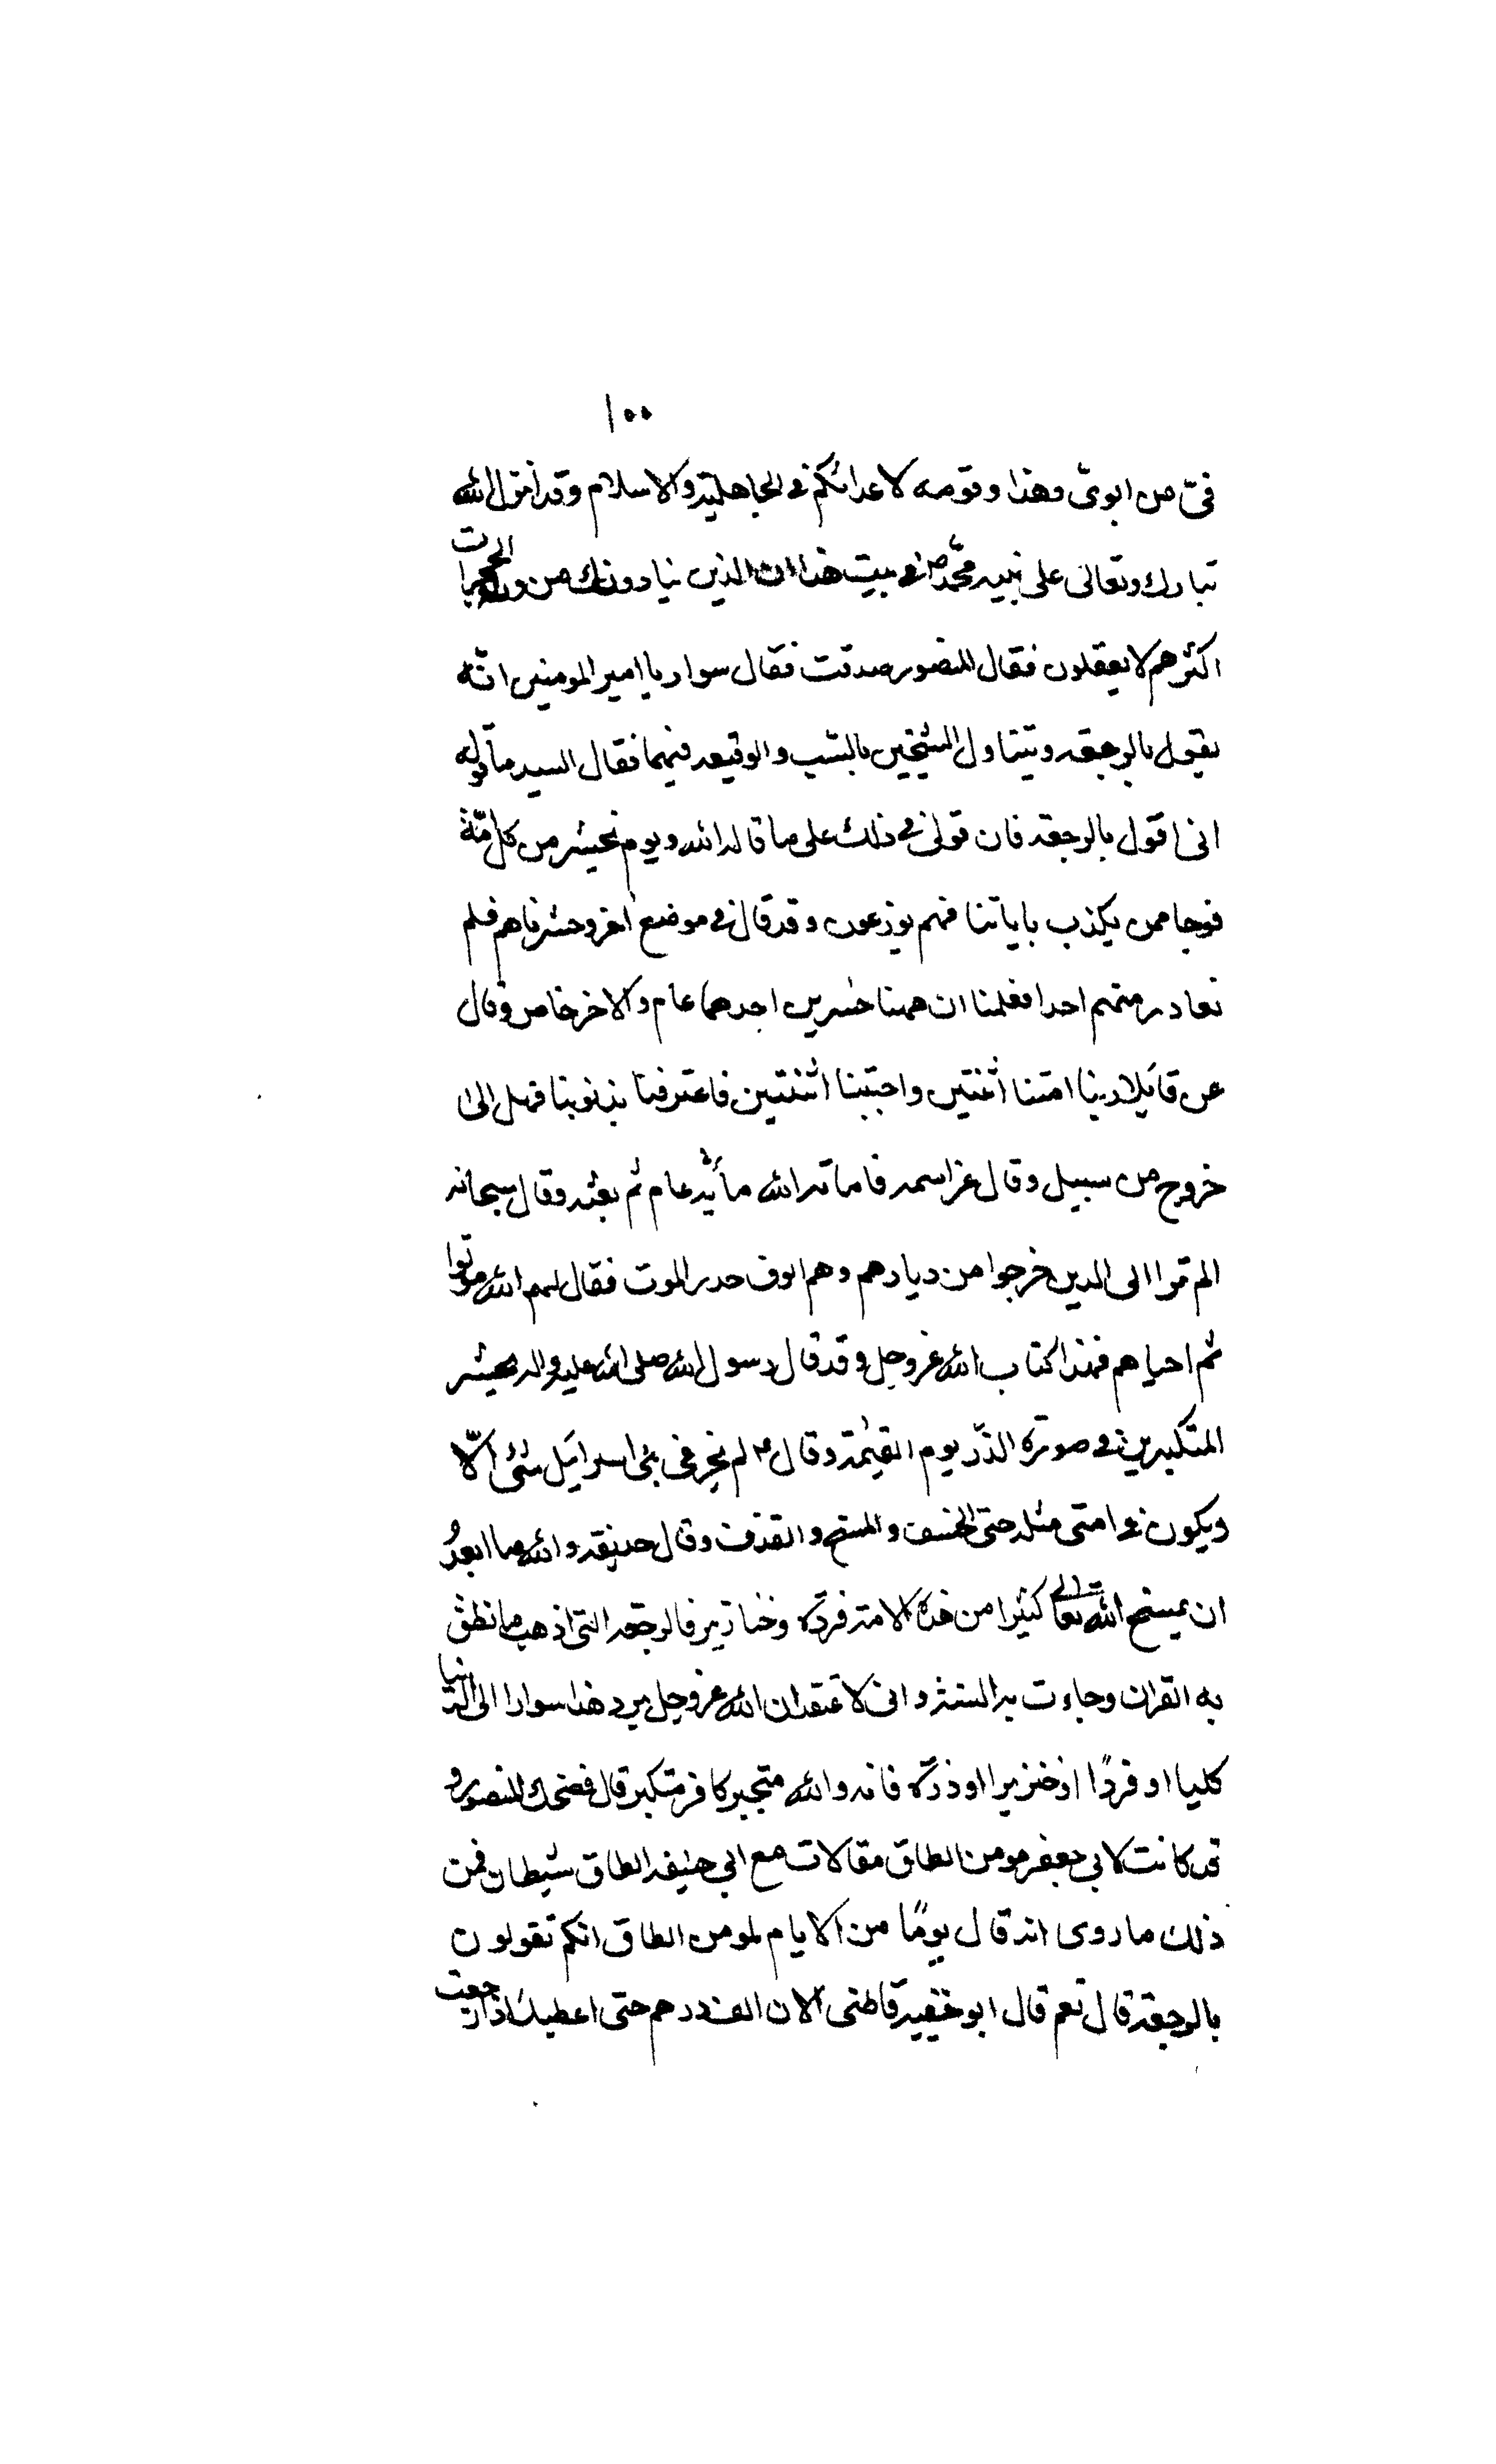 ١٠٠
فيّ من ابويّ وهذا وقومه لاعدائكم في الجاهلية والاسلام وقد انزل الله
تبارك وتعالى على نبيه محمّد ص في بيت هذا ان الذين ينادونك من وراء الحجرات
اكثرهم لا يعقلون فقال المنصور صدقت فقال سوار يا امير المومنين انّه
يقول بالرجعة ويتناول الشيخين بالسّب والوقيعه فيهما فقال السيد ماقوله
انى اقول بالرجعة فان قولى في ذلك على ما قاله الله ويوم نحشر من كل امّة
فوجا ممن يكذب باياتنا فهم يوزعون وقد قال في موضع اخر وحشرناهم فلم
نغادر منهم احدا فعلمنا ان ههنا حشرين احدهما عام والاخر خاص وقال
عن قائلا ربنا امتنا اثنتين واحييتنا اثنتين فاعترفنا بذنوبنا فهل الى
خروج من سبيل وقال عز اسمه فاماته الله مأئة عام ثم بعثه وقال سبحانه
الم تر الى الذين خرجوا من ديارهم وهم الوف حذر الموت فقال لهم الله موتوا
ثم احياهم فهذا كتاب الله عز وجل وقد قال رسول الله صلى الله عليه واله يحشر
المتكبرين في صورة الذّر يوم القيمة وقال ع لم يجر في بنى اسرائيل شئ الّا
ويكون في امتى مثله حتى الخسف والمسخ والقذف وقال حذيفه والله ما ابعدُ
ان يمسخ الله تعالى كثيرا من هذه الامة قردة وخنازير فالرجعة التى اذهب ما نطق
به القران وجاءت به السنة وانى لاعتقد ان الله عز وجل يرد هذا سوارا الى الدنيا
كلبا او قردًا او خنزيرا او ذرّة فانه والله متجبر كافر متكبر قال فضحك المنصور و
قد كانت لابي جعفر مومن الطاق مقالات مع ابي حنيفه الطاق شيطان فمن
ذلك ما روى انه قال يومًا من الايام لمومن الطاق انكم تقولون
بالرجعة قال نعم قال ابو حنيفة فاطنى الان الف درهم حتى اعطيك اذا رجعت